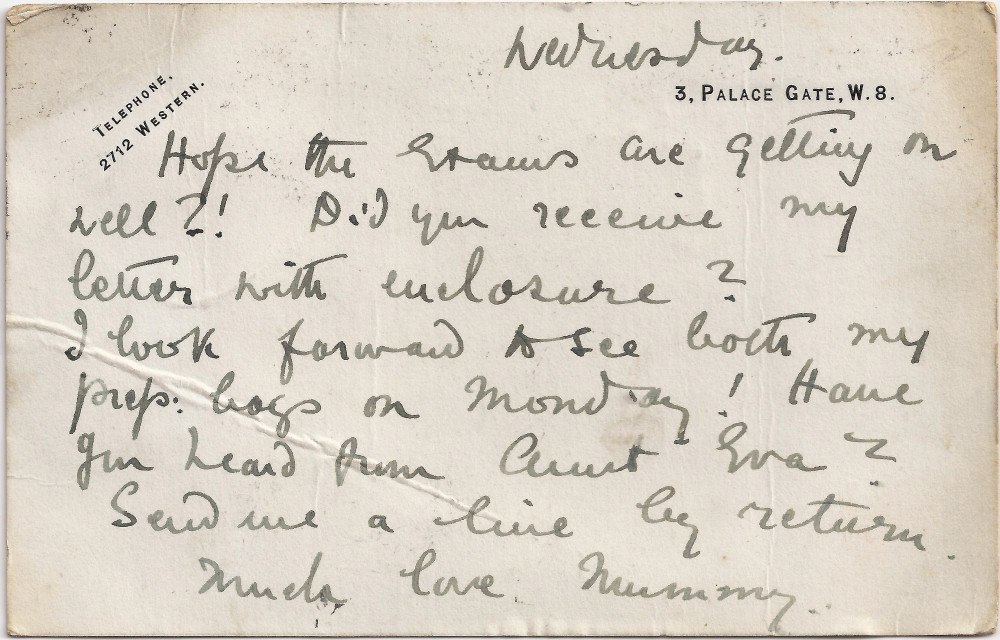 Wednesday.
TELEPHONE.
2712 WESTERN.
3, PALACE GATE, W.8.
Hope the Exams are getting on
well?! Did you receive my
letter with enclosure?
I look forward to see both my
prep: boys on Monday! Have
you heard from Aunt Eva?
Send me a line by return.
Much love Mummy.